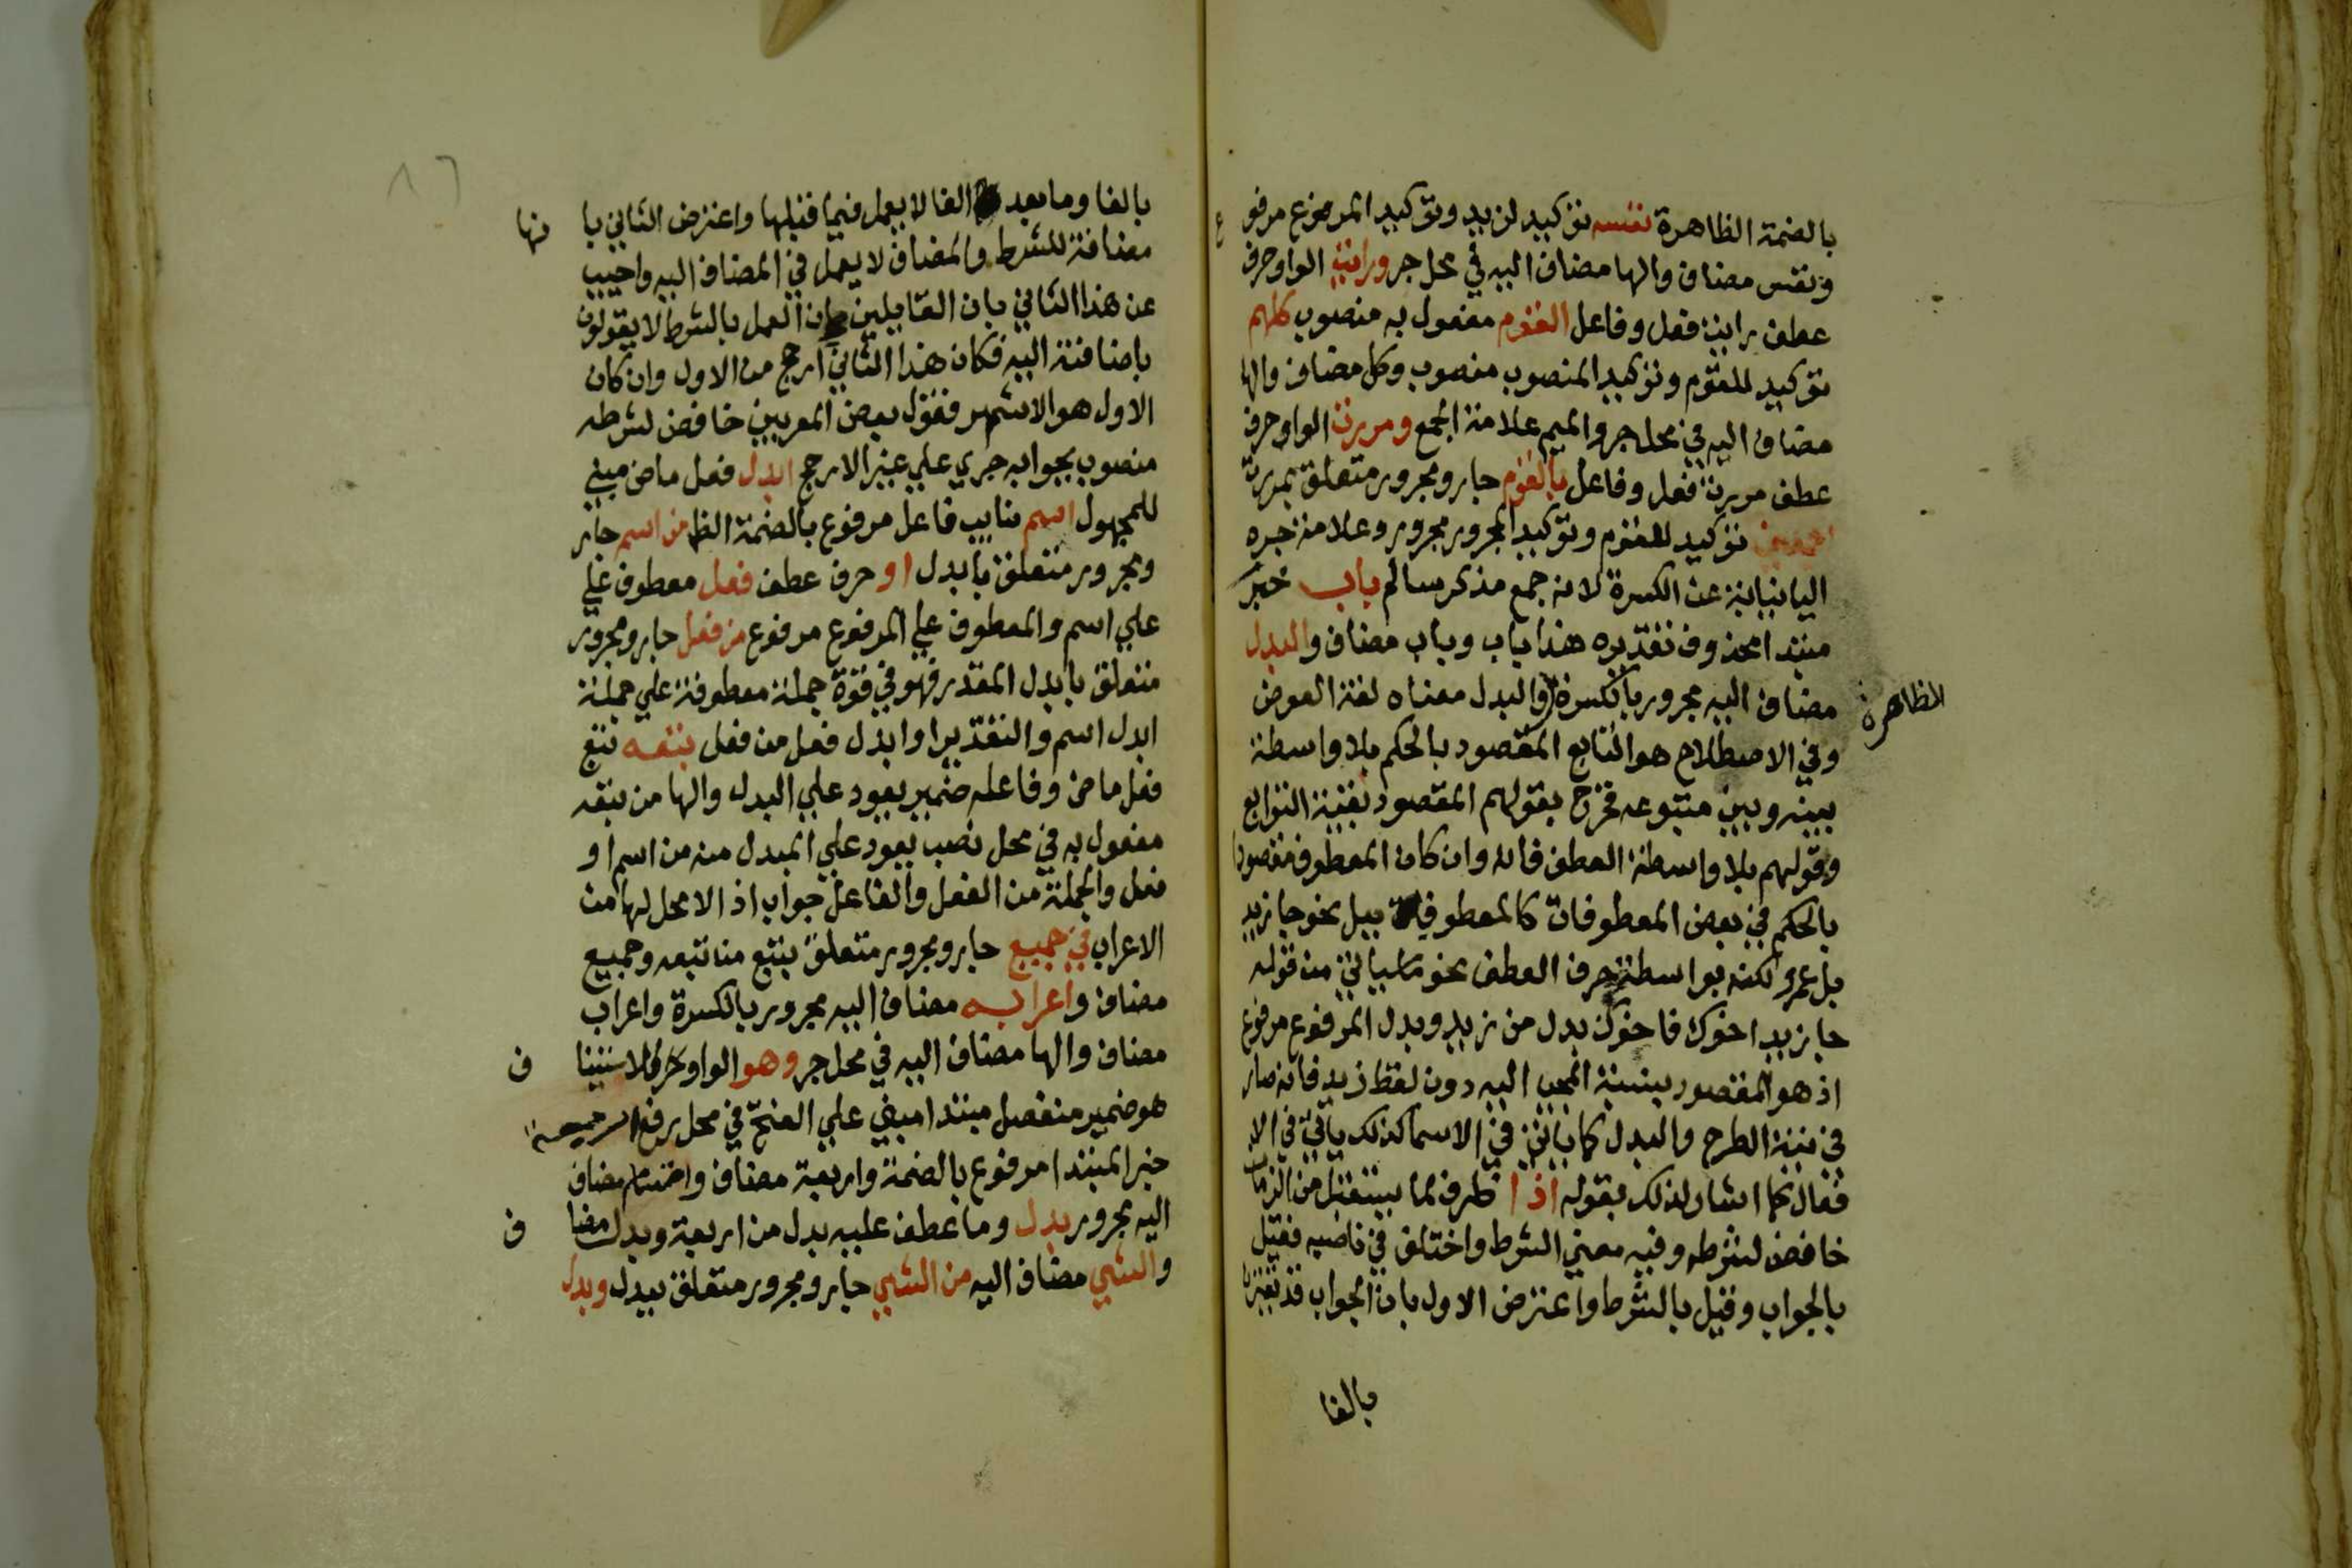 بالضمة الظاهرة نفسه توكيد لزيد وتوكيد المرفوع مرفوع
ونفس مضاف والها مضاف اليه في محل جر ورايت الواو حرف
عطف رايت فعل وفاعل القوم مفعول به منصوب كلهم
توكيد للقوم وتوكيد المنصوب منصوب وكل مضاف والها
مضاف اليه في محل جر والميم علامة الجمع ومررت الواو حرف
عطف مررت فعل وفاعل بالقوم جار ومجرور متعلق بمررت
اجمعين توكيد للقوم وتوكيد المجرور مجرور وعلامة جره
اليا نيابة عن الكسرة لانه جمع مذكر سالم باب خبر
مبتدا محذوف تقديره هذا باب وباب مضاف والبدل
مضاف اليه مجرور بالكسرة والبدل معناه لغة العوض
الظاهرة
وفي الاصطلاح هو التابع المقصود بالحكم بلا واسطة
بينه وبين متبوعه فخرج بقولهم المقصود بقية التوابع
وقولهم بلا واسطة العطف فانه وان كان المعطوف مقصودا
بالحكم في بعض المعطوفات كالمعطوف ببل نحو جا زيد
بل عمرو لكنه بواسطة حرف العطف نحو ما سياتي من قوله
جا زيد اخوك فاخوك بدل من زيد وبدل المرفوع مرفوع
اذ هو المقصود بنسبة المجي اليه دون لفظ زيد فانه صار
في نية الطرح والبدل كما ياتي في الاسما كذلك ياتي في الا
فعال كما اشار لذلك بقوله اذا ظرف لما يستقبل من الزمان
خافض لشرطه وفيه معني الشرط واختلف في ناصبه فقيل
بالجواب وقيل بالشرط واعترض الاول بان الجواب قد يقترن
بالفا
٨٦
بالفا وما بعد الفا لا يعمل فيما قبلها واعترض الثاني با
نها
مضافة للشرط والمضاف لا يعمل في المضاف اليه واجيب
عن هذا الثاني بان القايلين بان العمل بالشرط لا يقولون
باضافته اليه فكان هذا الثاني ارجح من الاول وان كان
الاول هو الاشهر فقول بعض المعربين خافض لشرطه
منصوب بجوابه جري علي غير الارجح ابدل فعل ماض مبني
للمجهول اسم نايب فاعل مرفوع بالضمة الظا من اسم جار
ومجرور متعلق بابدل او حرف عطف فعل معطوف علي
علي اسم والمعطوف علي المرفوع مرفوع من فعل جار ومجرور
متعلق بابدل المقدر فهو في قوة جملة معطوفة علي جملة
ابدل اسم والتقدير او ابدل فعل من فعل بتعه تتبع
فعل ماض وفاعله ضمير يعود علي البدل والها من تبعه
مفعول به في محل نصب يعود علي المبدل منه من اسم او
فعل والجملة من الفعل والفاعل جواب اذا لا محل لها من
الاعراب في جميع جار ومجرور متعلق بتبع من تبعه وجميع
مضاف واعرابه مضاف اليه مجرور بالكسرة واعراب
مضاف والها مضاف اليه في محل جر وهو الواو حرف للاستينا
ف
هو ضمير منفصل مبتدا مبني علي الفتح في محل رفع
خبر المبتدا مرفوع بالضمة واربعة مضاف واقسام مضاف
اليه مجرور بدل وما عطف عليه بدل من اربعة وبدل مضا
ف
والشي مضاف اليه من الشي جار ومجرور متعلق ببدل وبدل